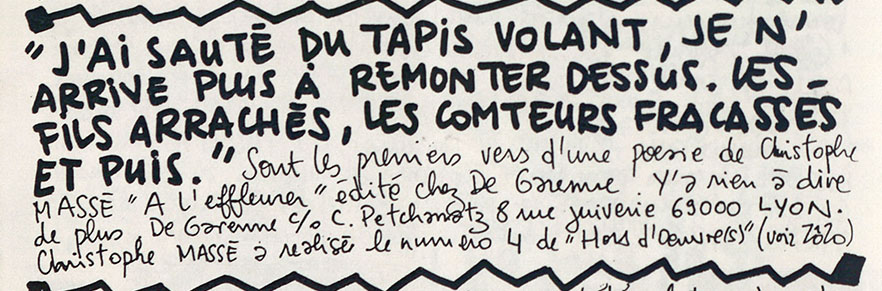 "J'AI SAUTÉ DU TAPIS VOLANT, JE N'
ARRIVE PLUS À REMONTER DESSUS. LES
FILS ARRACHÉS, LES COMTEURS FRACASSÉS
ET PUIS." Sont les premiers vers d'une poesie de Christophe
MASSÉ "A l'effleurer" édité chez De Garenne. Y'a rien à dire
de plus De Garenne c/o C. Petchanatz 8 rue juiverie 69000 LYON.
Christophe MASSÉ à realisé le numero 4 de "Hors d'Oeuvre(s)" (voir ZoZo)